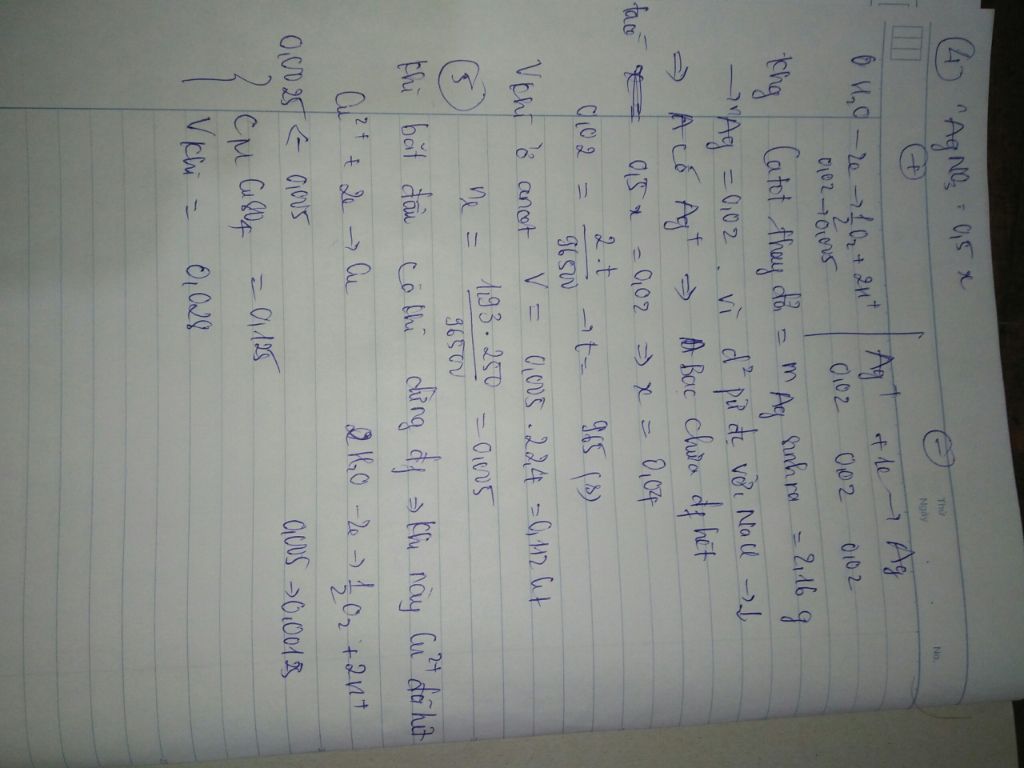 ④ nAgNO₃ = 0,5 x
⊕ ⊖
H₂O - 2e → ½O₂ + 2H⁺ Ag⁺ + 1e → Ag
0,02 → 0,005 0,02 0,02 0,02
Catot thay đổi = mAg sinh ra = 2,16 g
→ nAg = 0,02 . vì d² pứ đc với NaCl → ↓
⇒ A có Ag⁺ ⇒ Bạc chưa đp hết
0,5 x = 0,02 ⇒ x = 0,04
0,02 = 2.t / 96500 → t = 965 (s)
Vkhí ở anot V = 0,005 . 22,4 = 0,112 lít
⑤ ne = 1,93 . 250 / 96500 = 0,005
Khi bắt đầu có khí dừng đp ⇒ khi này Cu²⁺ đã hết
Cu²⁺ + 2e → Cu 2H₂O - 2e → ½O₂ + 2H⁺
0,0025 ← 0,005 0,005 → 0,00125
CM CuSO₄ = 0,125
Vkhí = 0,028
Thứ
Ngày
No.